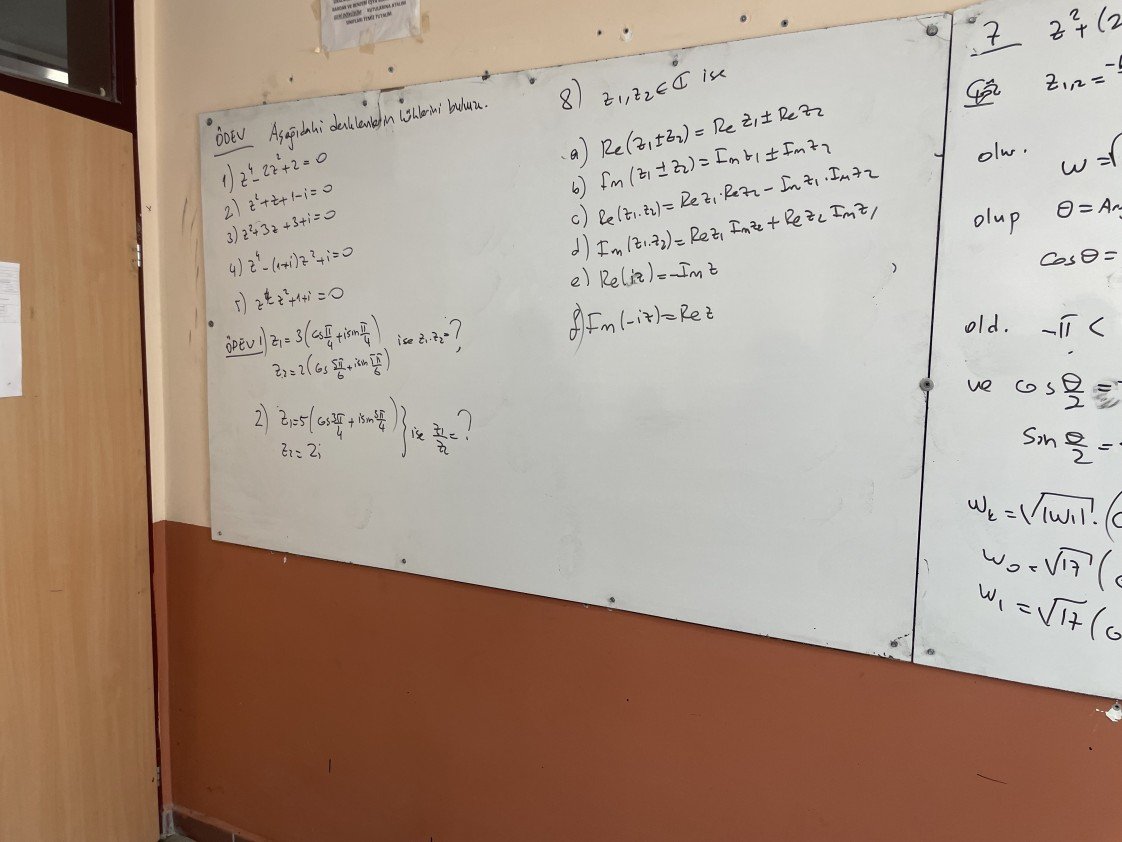 KUTULARINA ATALIM
SINIFLARI TEMİZ TUTALIM.
ÖDEV Aşağıdaki denklemlerin köklerini bulunuz.
1) z⁴-2z²+2=0
2) z²+z+1-i=0
3) z²+3z+3+i=0
4) z⁴-(1+i)z²+i=0
5) z⁴-z²+1+i=0
ÖDEV 1) z₁=3(cos π/4 + i sin π/4) ise z₁.z₂=?
z₂=2(cos 5π/6 + i sin 5π/6)
2) z₁=5(cos 3π/4 + i sin 3π/4) } ise z₁/z₂=?
z₂=2i
8) z₁,z₂∈ℂ ise
a) Re(z₁±z₂)=Re z₁±Re z₂
b) Im(z₁±z₂)=Im z₁±Im z₂
c) Re(z₁.z₂)=Re z₁.Re z₂-Im z₁.Im z₂
d) Im(z₁.z₂)=Re z₁ Im z₂+Re z₂ Im z₁
e) Re(iz)=-Im z
f) Im(-iz)=Re z
7 z²+(2
Çöz z₁,₂=
olur. w=√
olup θ=Ar
cosθ=
old. -π <
ve cos θ/2 =
Sin θ/2 =
wₖ=√|w|.(
w₀=√17(
w₁=√17(